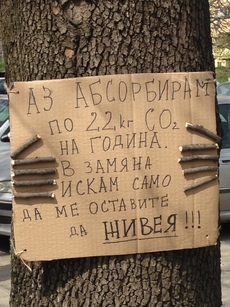 АЗ АБСОРБИРАМ
ПО 22 кг CO₂
НА ГОДИНА.
В ЗАМЯНА
ИСКАМ САМО
ДА МЕ ОСТАВИТЕ
ДА ЖИВЕЯ!!!